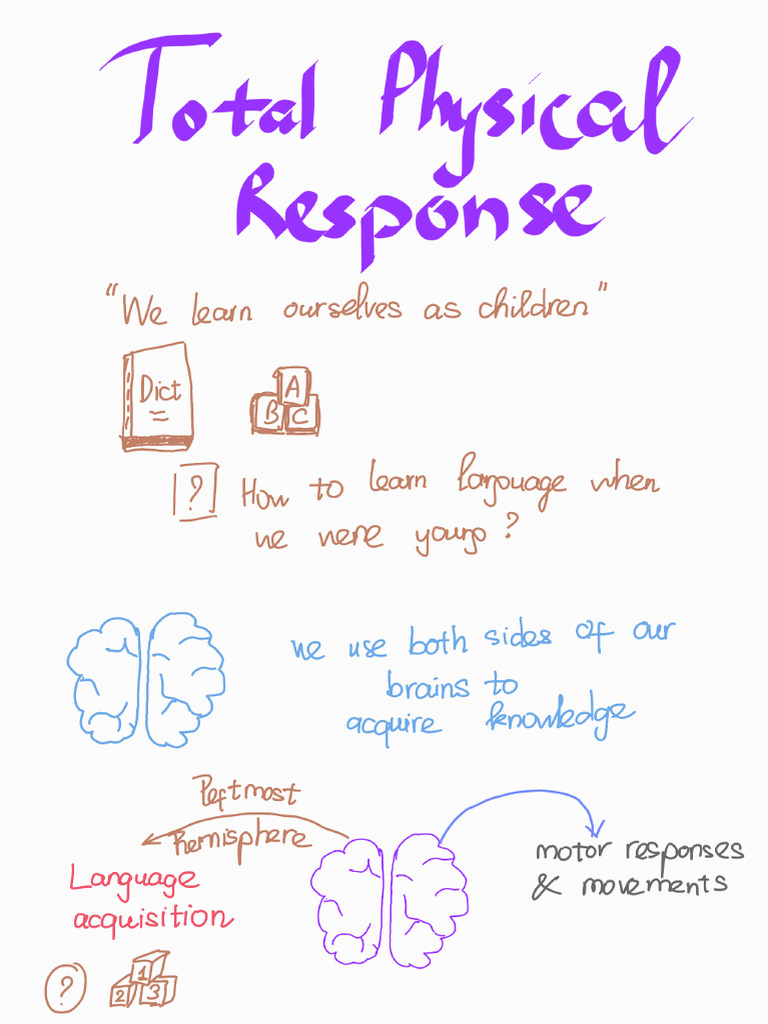 Total Physical
Response
"We learn ourselves as children"
Dict
A
B C
? How to learn language when
we were young?
we use both sides of our
brains to
acquire knowledge
Leftmost
Hemisphere
motor responses
& movements
Language
acquisition
?
1
2 3